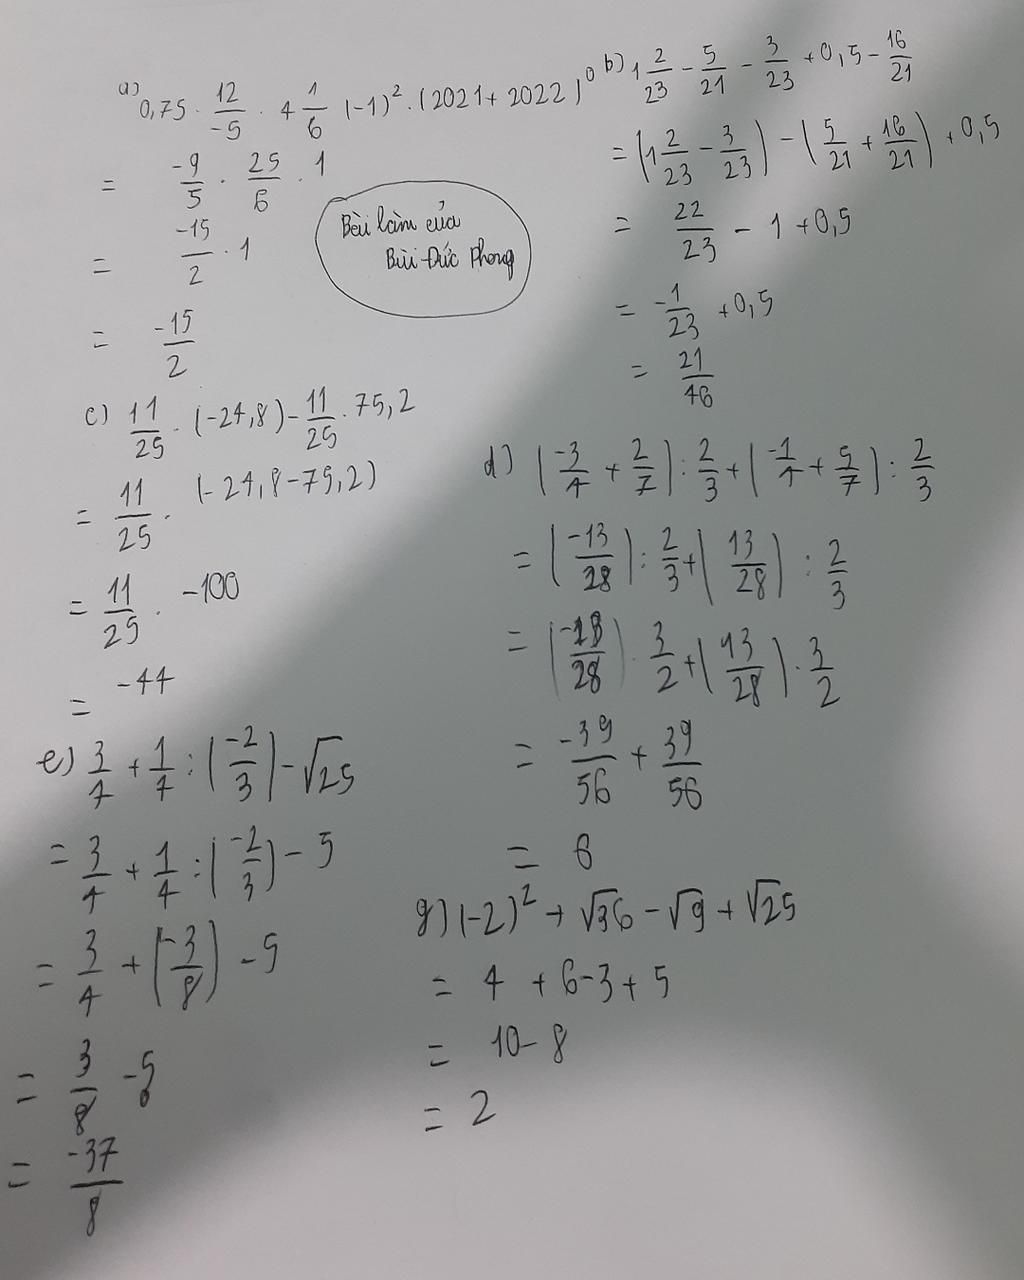 a) 0,75 . 12/-5 . 4 1/6 (-1)² . (2021 + 2022)⁰
= -9/5 . 25/6 . 1
= -15/2 . 1
= -15/2
Bài làm của
Bùi Đức Phong
b) 1 2/23 - 5/21 - 3/23 + 0,5 - 16/21
= (1 2/23 - 3/23) - (5/21 + 16/21) + 0,5
= 22/23 - 1 + 0,5
= -1/23 + 0,5
= 21/46
c) 11/25 . (-24,8) - 11/25 . 75,2
= 11/25 . (-24,8 - 75,2)
= 11/25 . -100
= -44
d) (-3/4 + 2/7) : 2/3 + (-1/4 + 5/7) : 2/3
= (-13/28) : 2/3 + (13/28) : 2/3
= (-13/28) . 3/2 + (13/28) . 3/2
= -39/56 + 39/56
= 0
e) 3/4 + 1/4 : (-2/3) - √25
= 3/4 + 1/4 : (-2/3) - 5
= 3/4 + (-3/8) - 5
= 3/8 - 5
= -37/8
g) (-2)² + √36 - √9 + √25
= 4 + 6 - 3 + 5
= 10 - 8
= 2